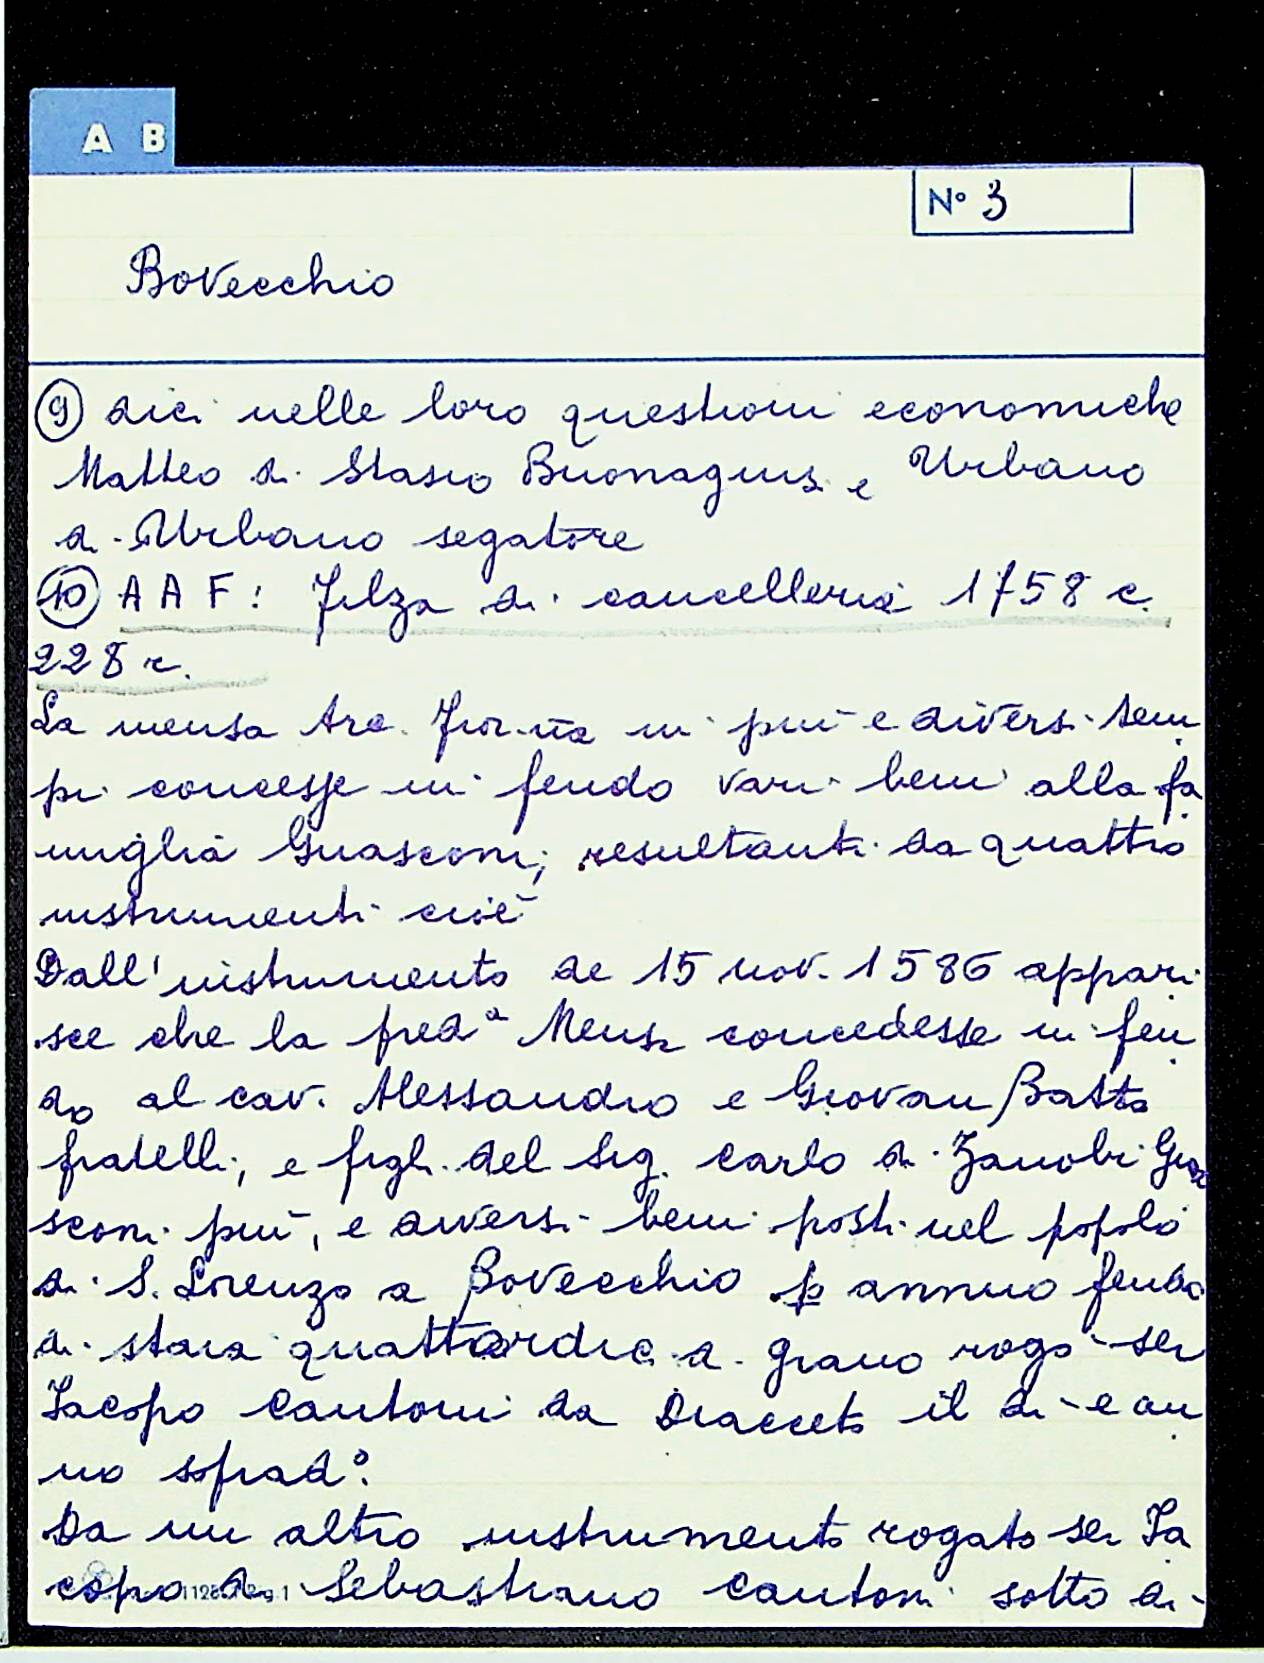 A B
N° 3
Bovecchio
9 dici nelle loro questioni economiche
Matteo di Stasio Buonaguisi e Urbano
di Urbano segatore
10 A A F: Filza di cancelleria 1758 c.
228 r.
La mensa Arc. Fior.na in più e diversi tem
pi concesse in feudo vari beni alla fa
miglia Guasconi, resultanti da quattro
instrumenti cioè
Dall'instrumento de 15 nov. 1586 appari
sce che la pred.a Mensa concedesse in feu
do al cav. Alessandro e Giovan Batta
fratelli, e figli del Sig. Carlo di Zanobi Gua
sconi più, e diversi beni posti nel popolo
di S. Lorenzo a Bovecchio p annuo feudo
di staia quattordici di grano rogò ser
Jacopo Cantoni da Diacceto il dì e an
no soprad°.
Da un altro instrumento rogato ser Ja
copo di Sebastiano Cantoni sotto dì